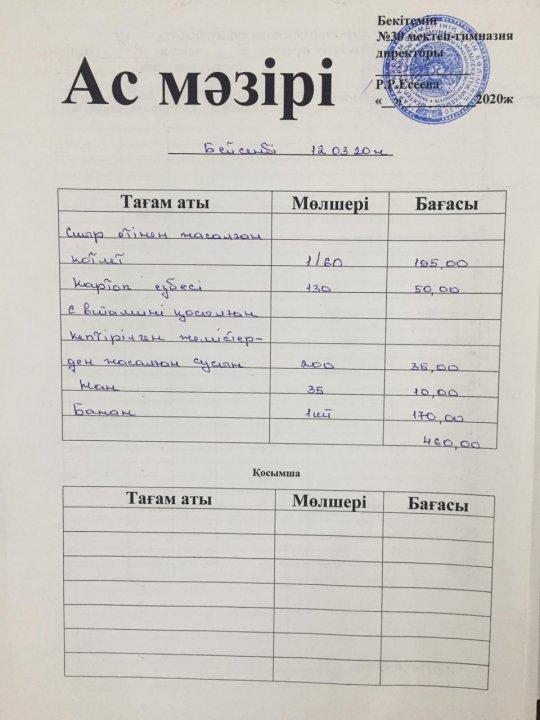 Бекітемін
№30 мектеп-гимназия
директоры
Р.Р.Есеева
« » 2020ж
Ас мәзірі
Бейсенбі 12.03.20ж
Тағам аты Мөлшері Бағасы
Сиыр етінен жасалған
котлет 1/60 195,00
Картоп езбесі 130 50,00
С витаміні қосылған
кептірілген жемістер-
ден жасалған сусын 200 35,00
Нан 35 10,00
Банан 1шт 170,00
460,00
Қосымша
Тағам аты Мөлшері Бағасы